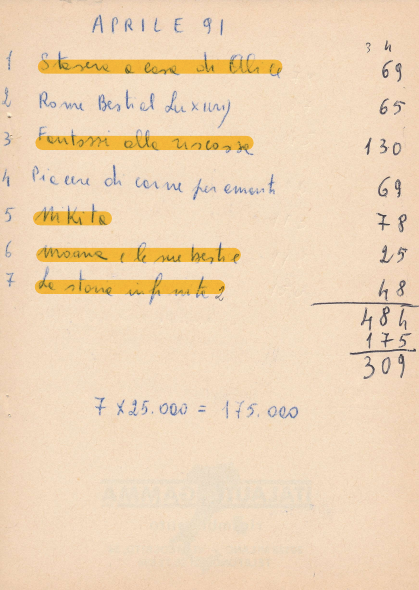 APRILE 91
3 4
1 Stasera a casa di Alice 69
2 Rome Bestial Luxury) 65
3 Fantozzi alla riscossa 130
4 Piacere di carne per amanti 69
5 Nikita 78
6 Moana e le sue bestie 25
7 La storia infinita 2 48
484
175
309
7 x 25.000 = 175.000